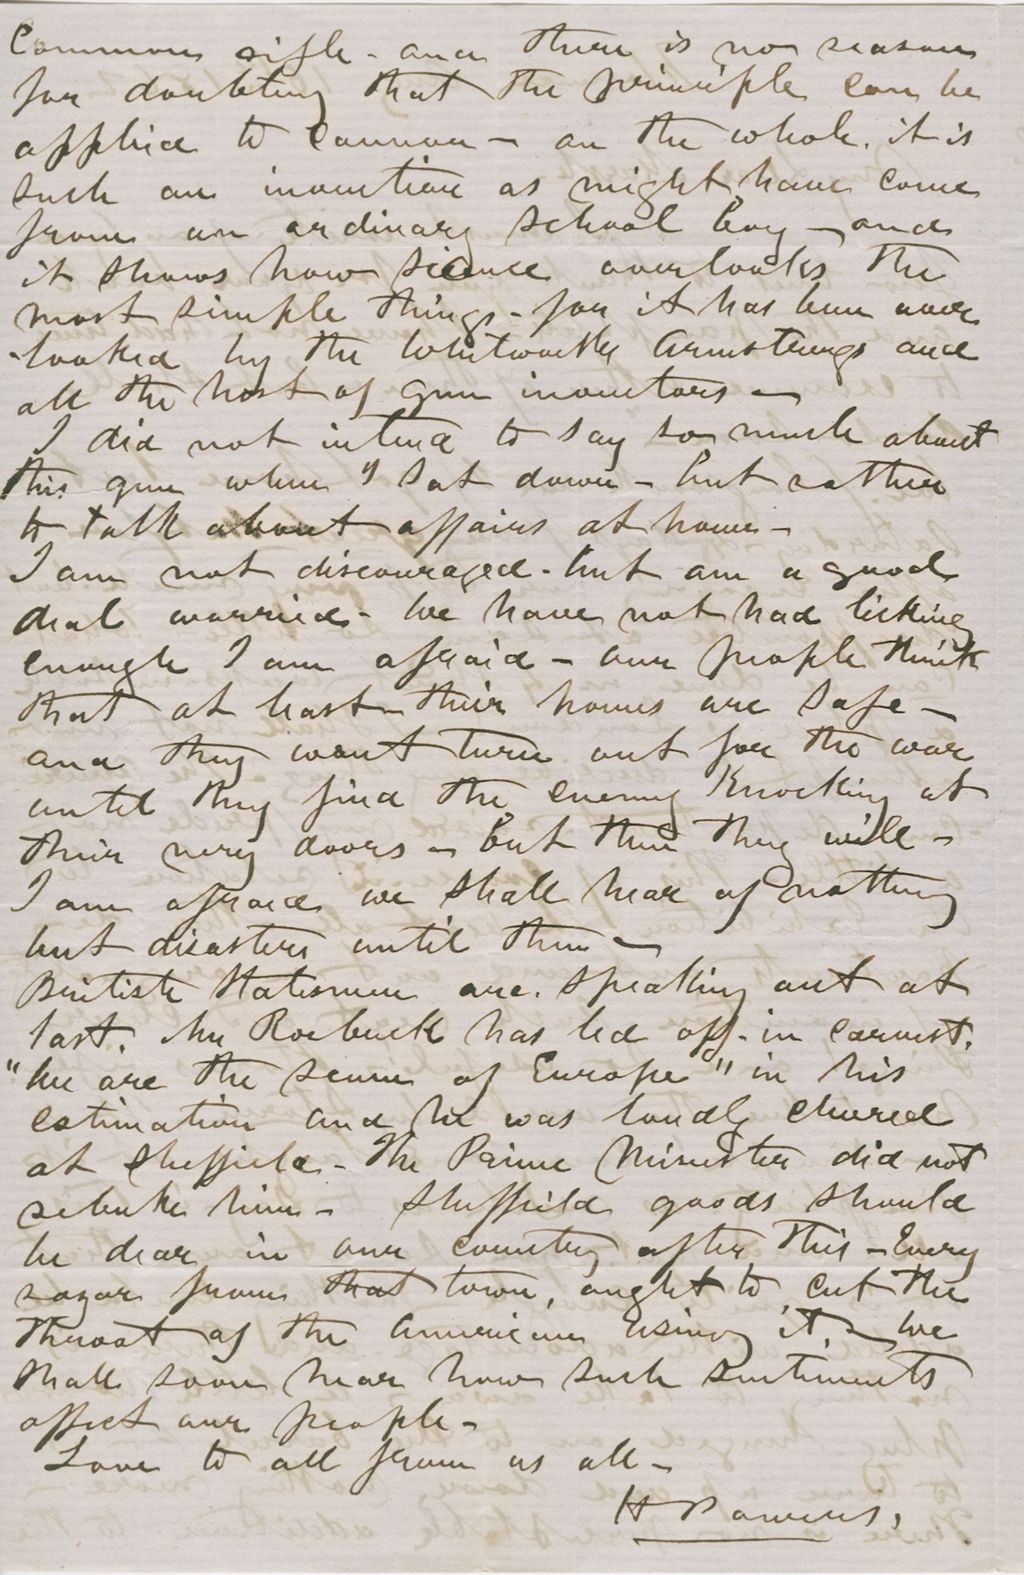 Common rifle - and there is no reason
for doubting that the principle can be
applied to Cannon - on the whole. it is
such an invention as might have come
from an ordinary school boy - and
it shows how science overlooks the
most simple things - for it has been over
-looked by the Whitworths Armstrongs and
all the host of gun inventors -
I did not intend to say so much about
this gun when I sat down - but rather
to talk about affairs at home -
I am not discouraged - but am a good
deal worried - We have not had licking
enough I am afraid - our people think
that at least their homes are safe -
and they wont turn out for the war
until they find the enemy Knocking at
their very doors - but then they will -
I am afraid we shall hear of nothing
but disasters until then -
British Statesmen are. speaking out at
last. Mr Roebuck has led off - in earnest.
"We are the scum of Europe" in his
estimation and he was loudly cheered
at Sheffield - The Prime Minister did not
rebuke him - Sheffield goods should
be dear in our country after this - Every
razor from that town, ought to cut the
throat of the American using it. - We
shall soon hear how such sentiments
affect our people -
Love to all from us all -
H Powers.